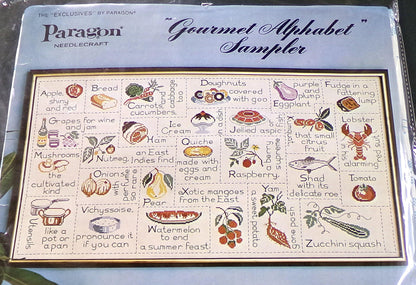 THE "EXCLUSIVES" BY PARAGON
Paragon
NEEDLECRAFT
"Gourmet Alphabet"
Sampler
Apple
shiny and
red
Bread
Carrots,
cucumbers,
cabbage
too
Doughnuts
covered
with goo
Eggplant
purple
and
plump
Fudge in a
fattening
lump
Grapes for wine
and jam
Ham
Ice
Cream
Jellied aspic
that small
citrus
fruit
Lobster
his alarming
red suit
Mushrooms,
the
cultivated
kind
Nutmeg,
East
Indies find
Onion
with
so rare
Pear
Quiche
made with
eggs and
cream
Raspberry,
Shad
with its
delicate roe
Tomato
Utensils
like a
pot or
a pan
Vichyssoise,
pronounce it
if you can
Watermelon to
end
a summer feast
Xotic mangoes
from the East
Yam,
sweet potato
Zucchini squash